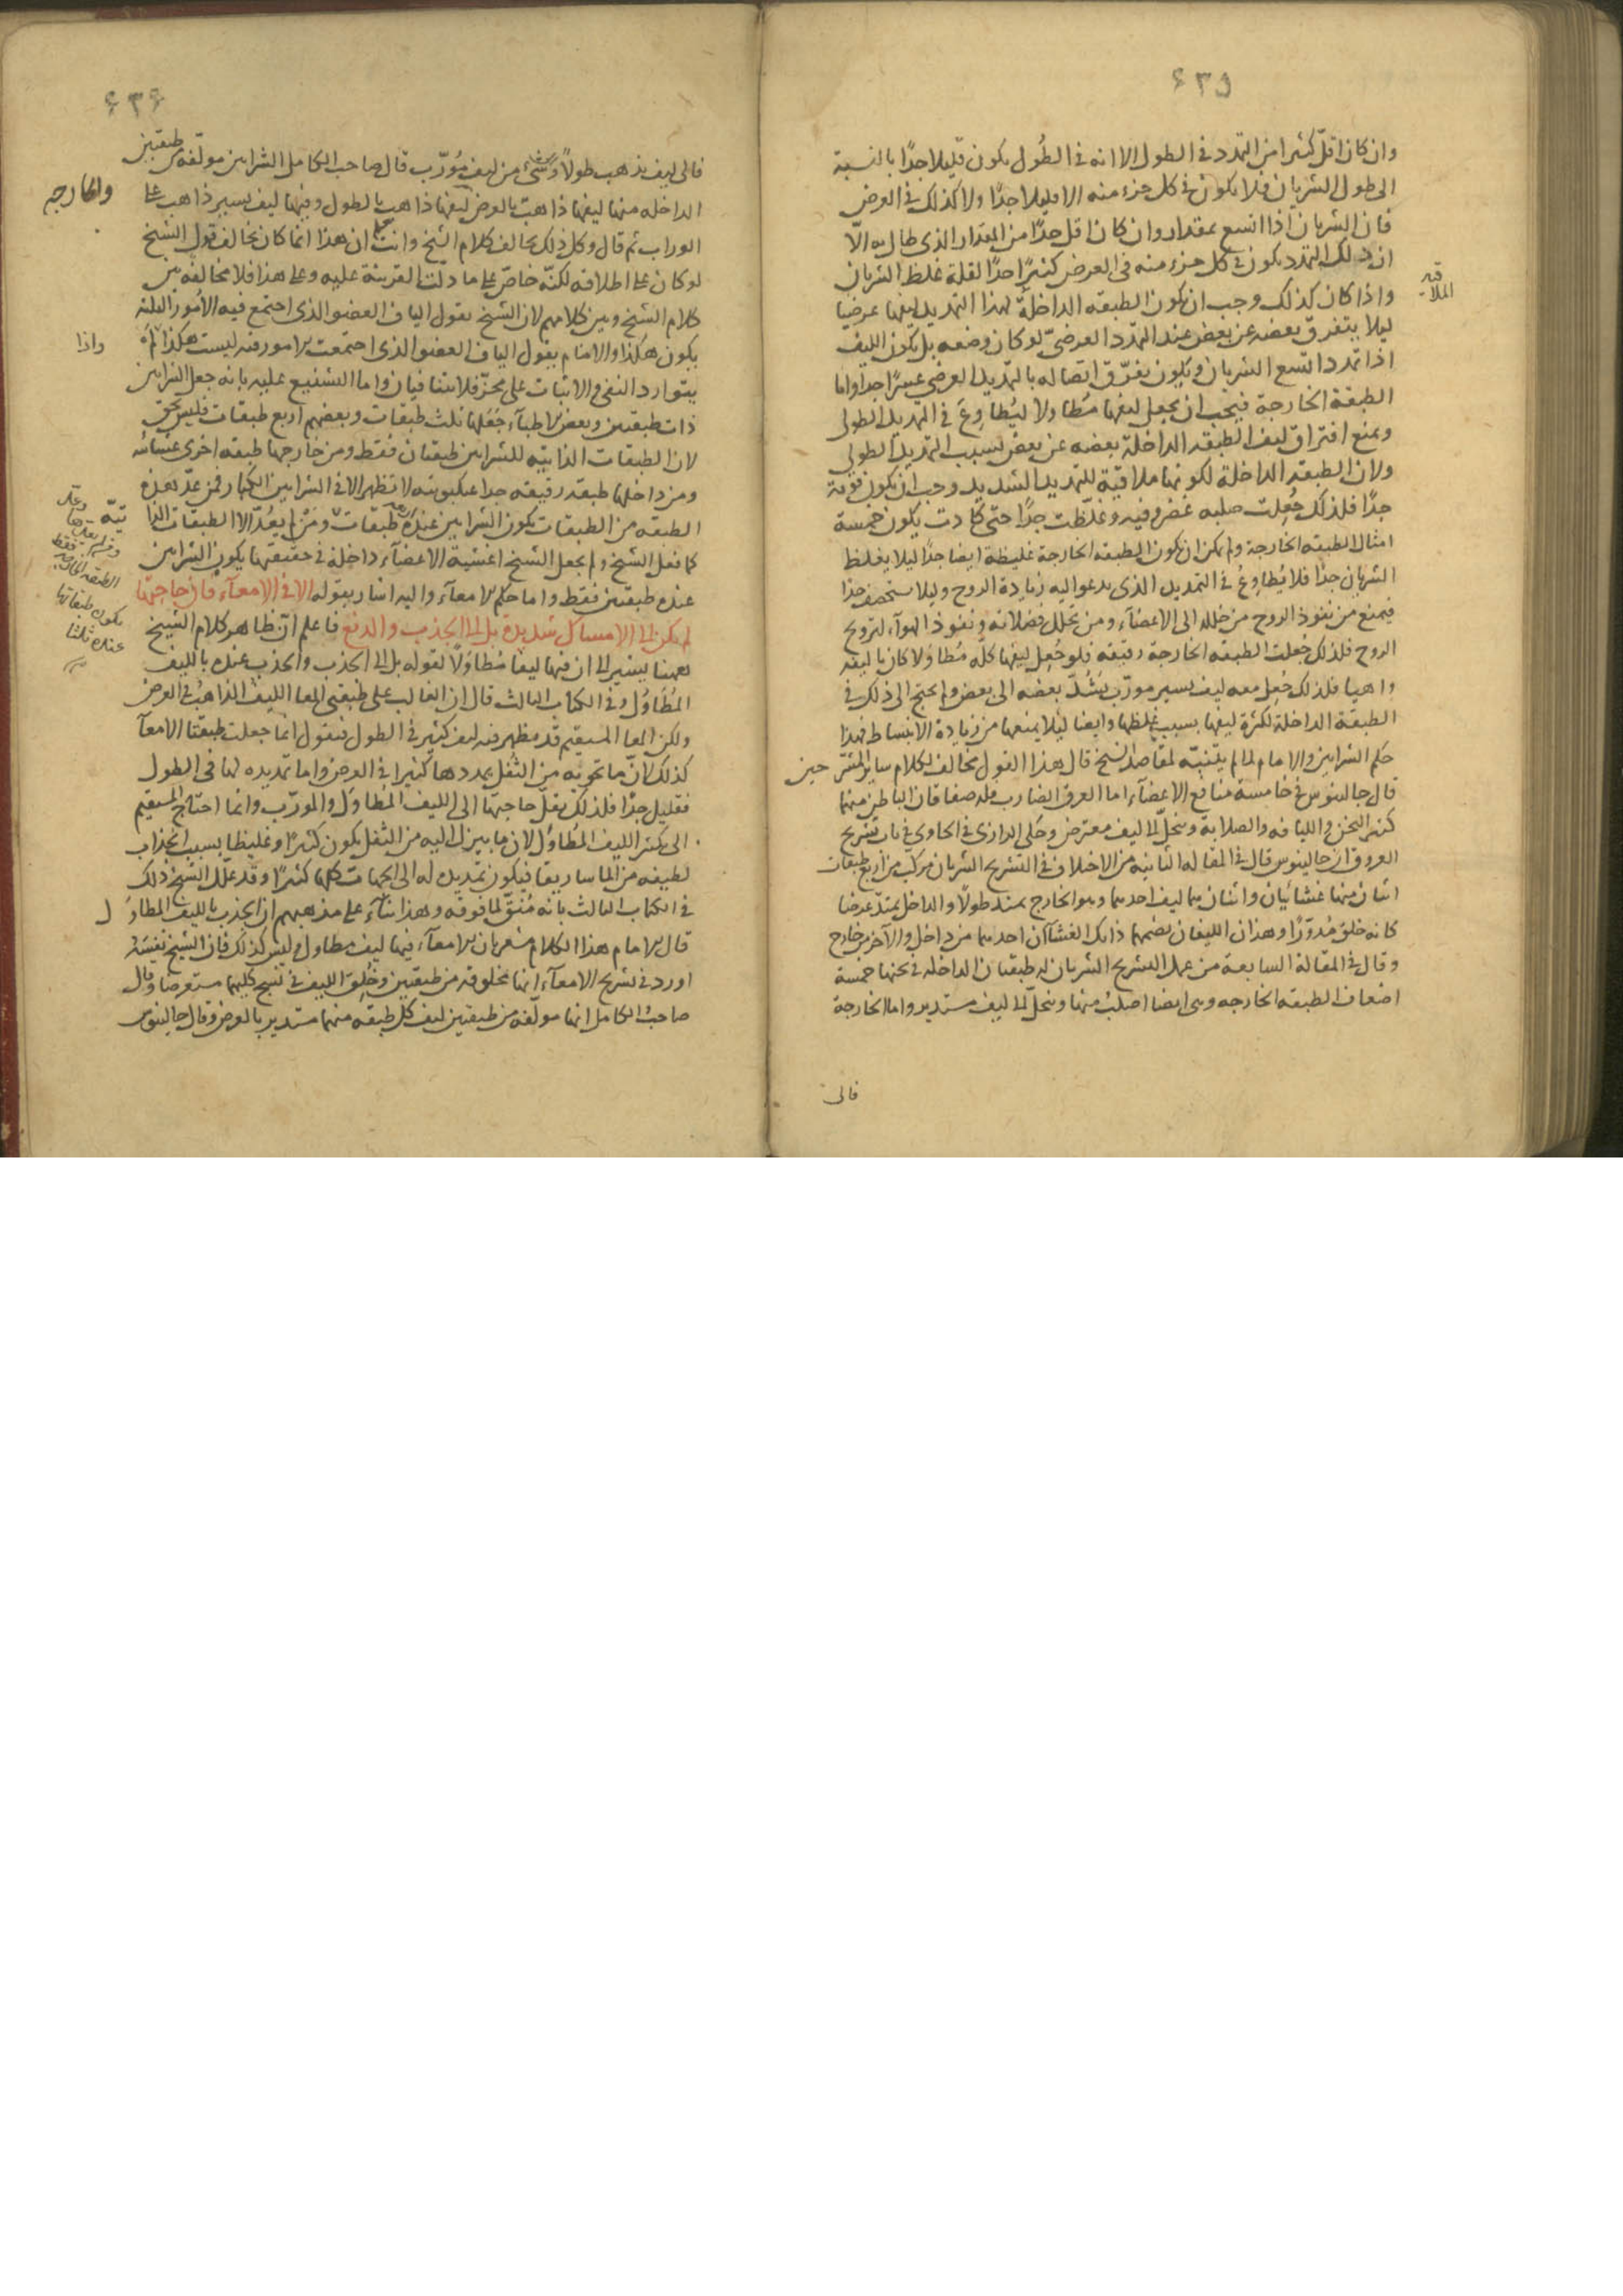 ٤٣٥
وان كان اقلّ كثيرا من التمدد في الطول الا انه في الطُول يكون قليلا جدًا بالنسبة
الى طول الشريان فلا يكون في كل جزء منه الا قليلا جدًا ولا كذلك في العرض
فان الشريان اذا اتسع بمقدار وان كان اقل جدًا من المقدار الذي طال به الّا
ان ذلك التمدد يكون في كل جزء منه في العرض كثيرًا جدًا لقلة غلظ الشريان
واذا كان كذلك وجب ان يكون الطبقه الداخلة لهذا التمديد ليفها عرضيا
الملاقيه
ليلا يتفرق بعضه عن بعض عند التمدد العرضيّ لو كان وضعه بل يكون الليف
اذا تمدد اتسع الشريان ويكون تفرّق اتصاله بالتمديد العرضي عسرًا جدا واما
الطبقة الخارجة فيجب ان يجعل ليفها مُطاولا ليُطاوِعَ في التمديد الطولي
ويمنع افتراق ليف الطبقه الداخلة بعضه عن بعض بسبب التمديد الطولي
ولان الطبقه الداخلة لكونها ملاقيّة للتمديد الشديد وجب ان تكون قوية
جدًا فلذلك جُعِلت صلبه غضروفيه وغلّظت جدًا حتى كادت يكون خمسة
امثال الطبقه الخارجة ولم يمكن ان يكون الطبقه الخارجة غليظة ايضا جدًا ليلا يغلظ
الشريان جدًا فلا يُطاوِعُ في التمديد الذي يدعوا اليه زيادة الروح وليلا يستحصف جدًا
فيمنع من نفوذ الروح من خلله الى الاعضآء ومن تحلل فضلاته ونفوذ الهوآء لترويح
الروح فلذلك جُعلت الطبقه الخارجة رقيقه فلو جُعِل ليفها كلّه مُطاولا كان تاليفه
واهيا فلذلك جُعِل معه ليف يسير مورّب يَشُدّ بعضه الى بعض ولم يحتج الى ذلك في
الطبقة الداخلة لكثرة ليفها بسبب غِلظها وايضا ليلا يمنعها من زيادة الانبساط فهذا
حكم الشرايين والامام لما لم يتنبّه لمقاصد الشيخ قال هذا القول مخالف لكلام ساير المشرّحين
قال جالينوس في خامسة منافع الاعضآء اما العرق الضارب فله صفاقان الباطن منهما
كثير الثخن والليافه والصلابة وينحلّ الى ليف معترض وحكى الرازي في الحاوي في باب تشريح
العروق ان جالينوس قال في المقاله الثانيه من الاخلاف في التشريح الشريان مركّب من اربع طبقات
اثنان منها غشائيان واثنان لهما ليف احدهما وهو الخارج يمتد طولًا والداخل يمتدّ عرضا
كانه خلق مُدوّرًا وهذان الليفان يضمهما ذانك الغشآآن احدهما من داخل والآخر من خارج
وقال في المقالة السابعة من عمل التشريح الشريان له طبقتان الداخله في ثخنها خمسة
اضعاف الطبقه الخارجه وهي ايضا اصلبُ منها وينحلّ الى ليف مستدير واما الخارجة
فالى
٤٣٦
فالى ليف يذهب طولًا وشيء من ليف مُورّب قال صاحب الكامل الشرايين مولفه من طبقتين
الداخله منها ليفها ذاهب بالعرض والخارجه ليفها ذاهب بالطول وفيها ليف يسير ذاهب على
الوراب ثم قال وكل ذلك يخالف كلام الشيخ وانت تعلم ان هذا انما كان يخالف قول الشيخ
لو كان على اطلاقه لكنّه خاصّ على ما دلت القرينة عليه وعلى هذا فلا مخالفه بين
كلام الشيخ وبين كلامهم لان الشيخ يقول الياف العضو الذي اجتمع فيه الامُور الثلثه
يكون هكذا والامام يقول الياف العضو الذي اجتمعت الامور فيه ليست هكذا واذا لم
يتوارد النفي والاثبات على محزّ فلا يتنافيان واما التشنيع عليه بانه جعل الشرايين
ذات طبقتين وبعض الاطبآء جَعَلها ثلث طبقات وبعضهم اربع طبقات فليس بحق
لان الطبقات الذاتيه للشرايين طبقتان فقط ومن خارجها طبقه اخرى غشائيه
ومن داخلها طبقه رقيقه جدا عنكبوتيه لا تظهر الا في الشرايين الكبار فمن عدّ هذه
الطبقه من الطبقات يكون الشرايين عنده اربع طبقات ومَنْ لم يعُدّ الا الطبقات الذاتيّه
وعدّ
الطبقه الخارجه فقط
يكون طبقاتها
عنده ثلثا
كما فعل الشيخ ولم يجعل الشيخ اغشية الاعضآء داخلة في حقيقتها يكون الشرايين
عنده طبقتين فقط واما حكم الامعآء واليه اشار بقوله الا في الامعآء فان حاجتها
لم يكن الى الامساك شديدة بل الى الجذب والدفع فاعلم انّ ظاهر كلام الشيخ
ههنا يشير الى ان فيها ليفا مُطاوَلًا لقوله بل الى الجذب والجذب عنده بالليف
المُطاوُل وفي الكتاب الثالث قال ان الغالب على طبقتي المعا الليف الذاهبُ في العرض
ولكن المعا المستقيم قد يظهر فيه ليف كثير في الطول فنقول انما جعلت طبقتا الامعآ
كذلك لانّ ما تحويه من الثُفل يمددها كثيرا في العرض واما تمديده لها في الطول
فقليل جدًا فلذلك يقلّ حاجتها الى الليف المُطاوَل والمورّب وانما احتاج المستقيم
الى كثير الليف المُطاوَل لان ما ينزل اليه من الثفل يكون كثيرًا وغليظا بسبب انجذاب
لطيفه من الماساريقا فيكون تمديده له الى الجهات كلها كثيرًا وقد علّل الشيخ ذلك
في الكتاب الثالث بانه مُنَقّ لما فوقه وهذا بنآء على مذهبهم ان الجذب بالليف المطاوَل
قال الامام هذا الكلام مشعر بان الامعآء فيها ليف مطاول وليس كذلك فان الشيخ نفسَه
اورد في تشريح الامعآء انها مخلوقه من طبقتين وخُلِق الليف في نسج كليهما مستعرضا وقال
صاحبُ الكامل انها مولّفه من طبقتين ليف كل طبقه منهما مستدير بالعرض وقال جالينوس